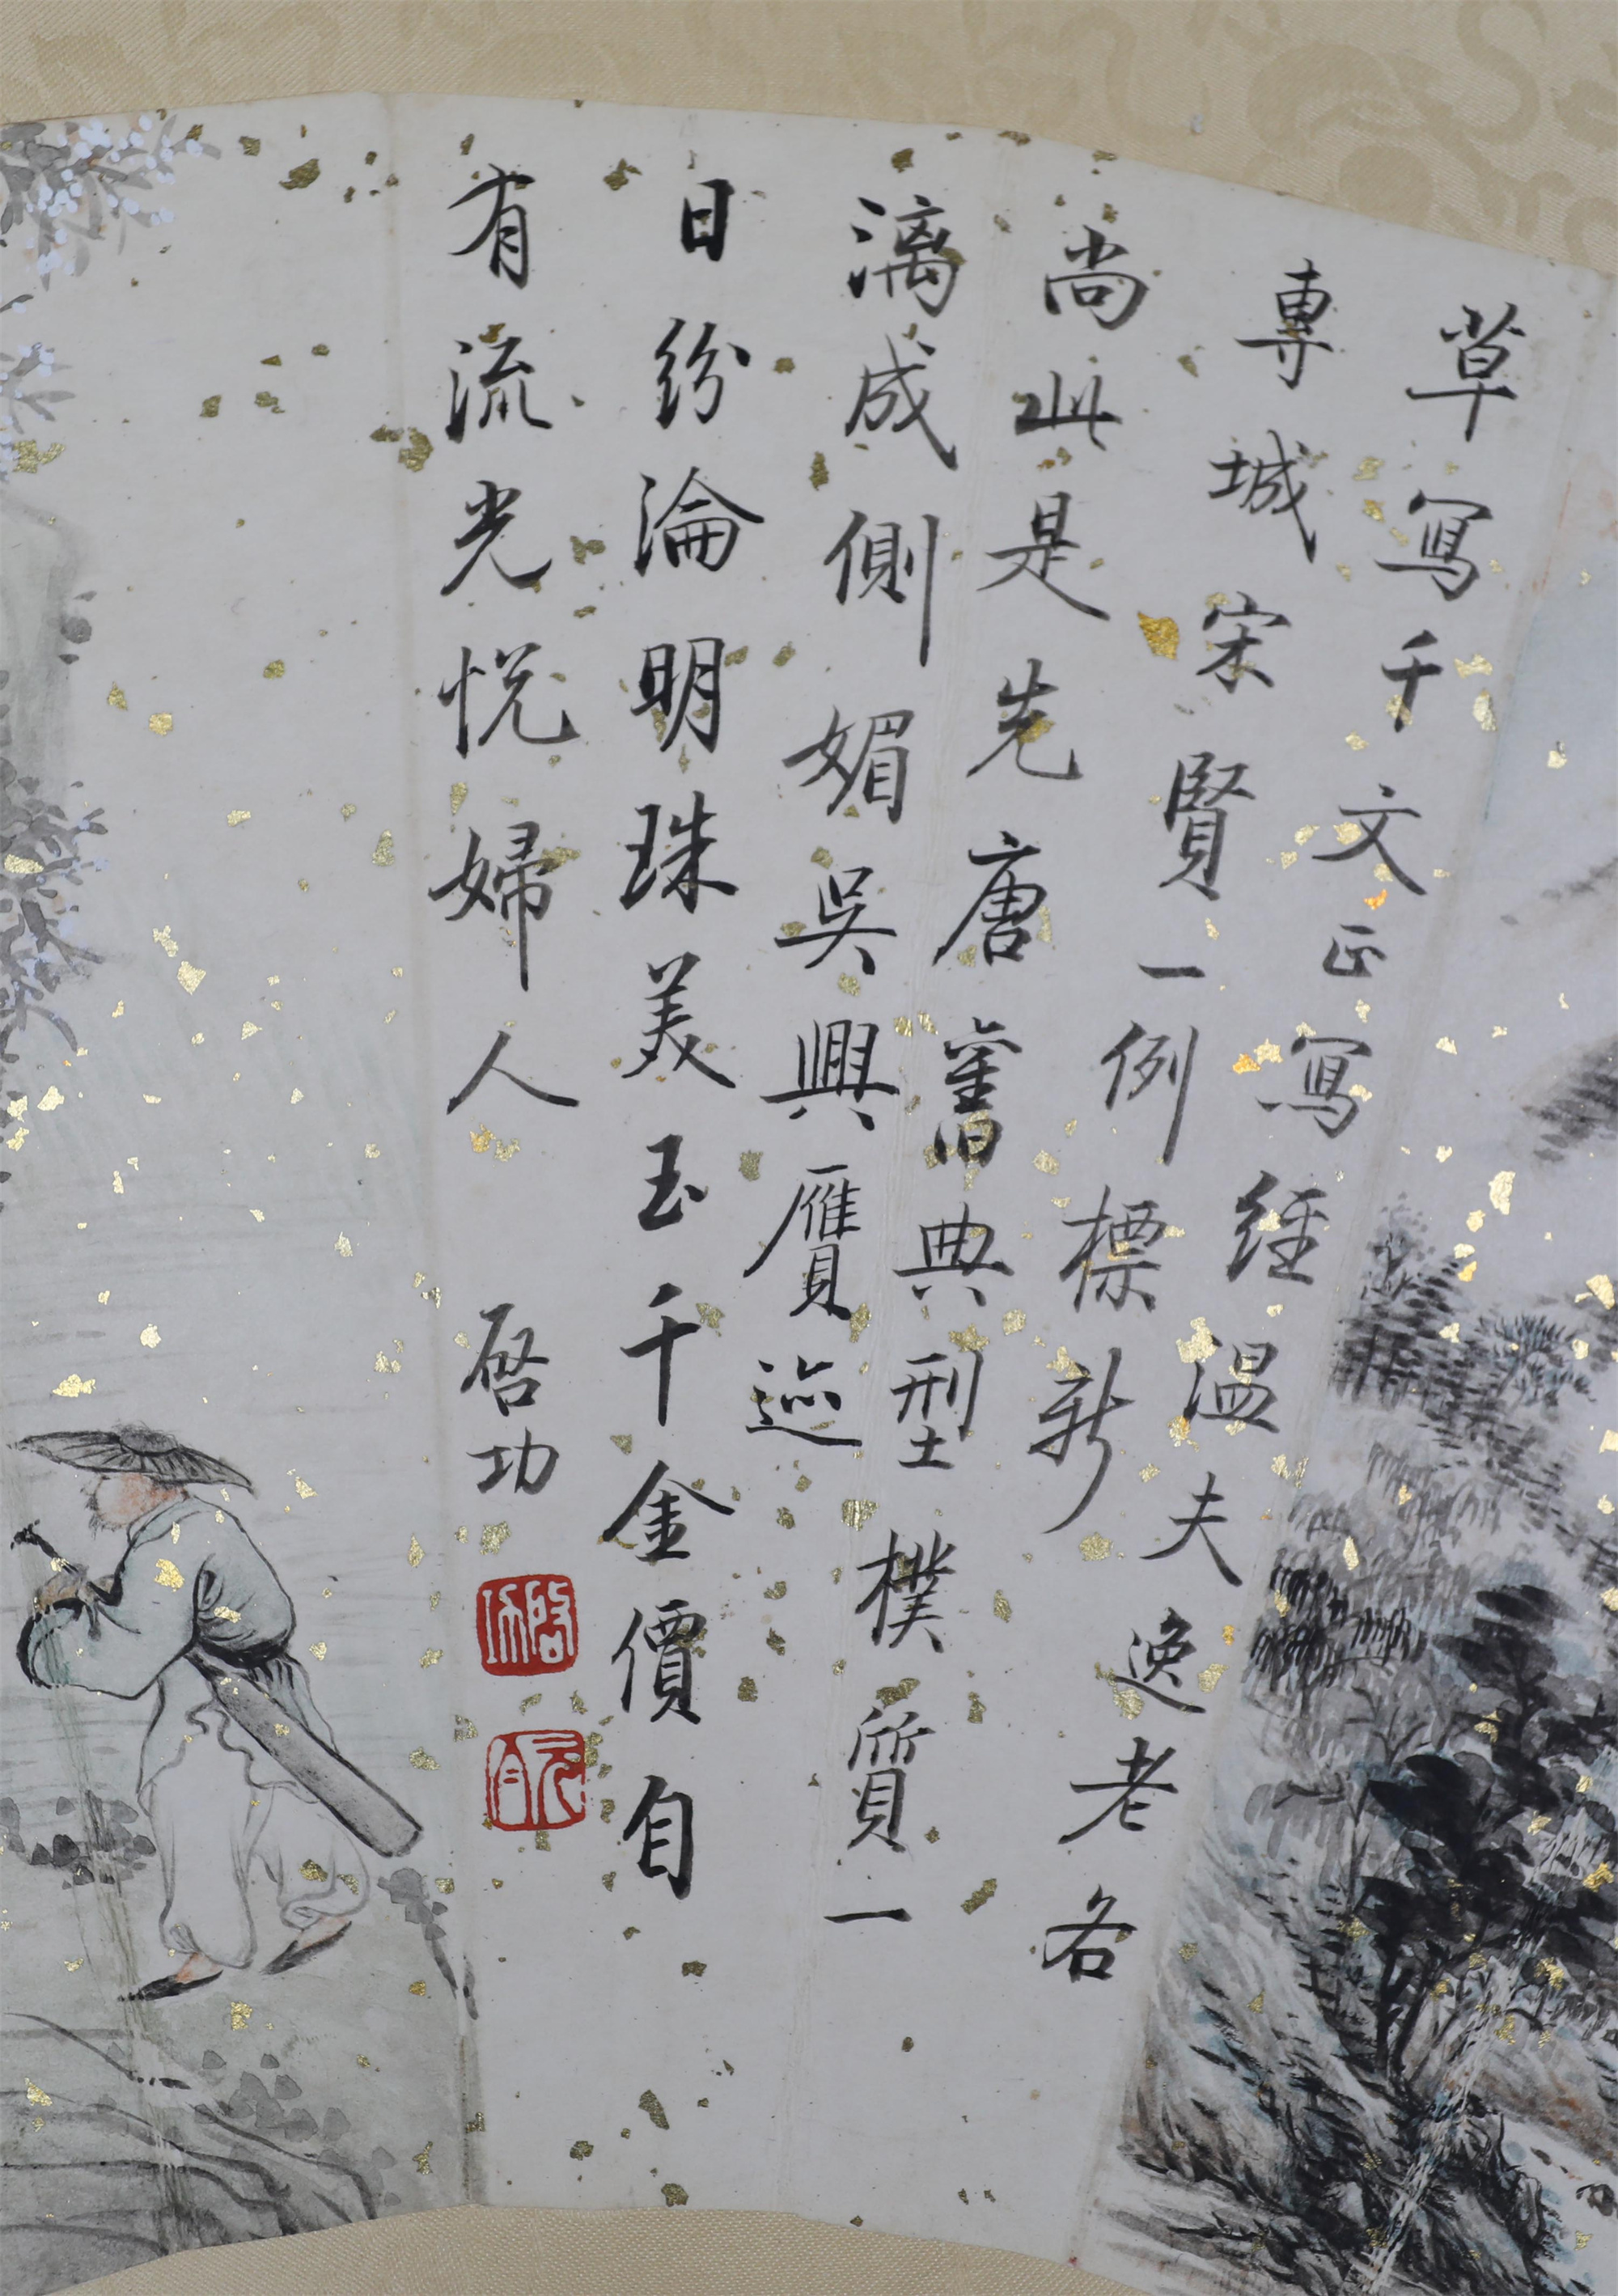 草寫千文正寫經温夫逸老各
專城宋賢一例標新
尚此是先唐舊典型樸質一
漓成側媚吳興贋迹
日紛淪明珠美玉千金價自
有流光悦婦人
啓功
啓功
元白